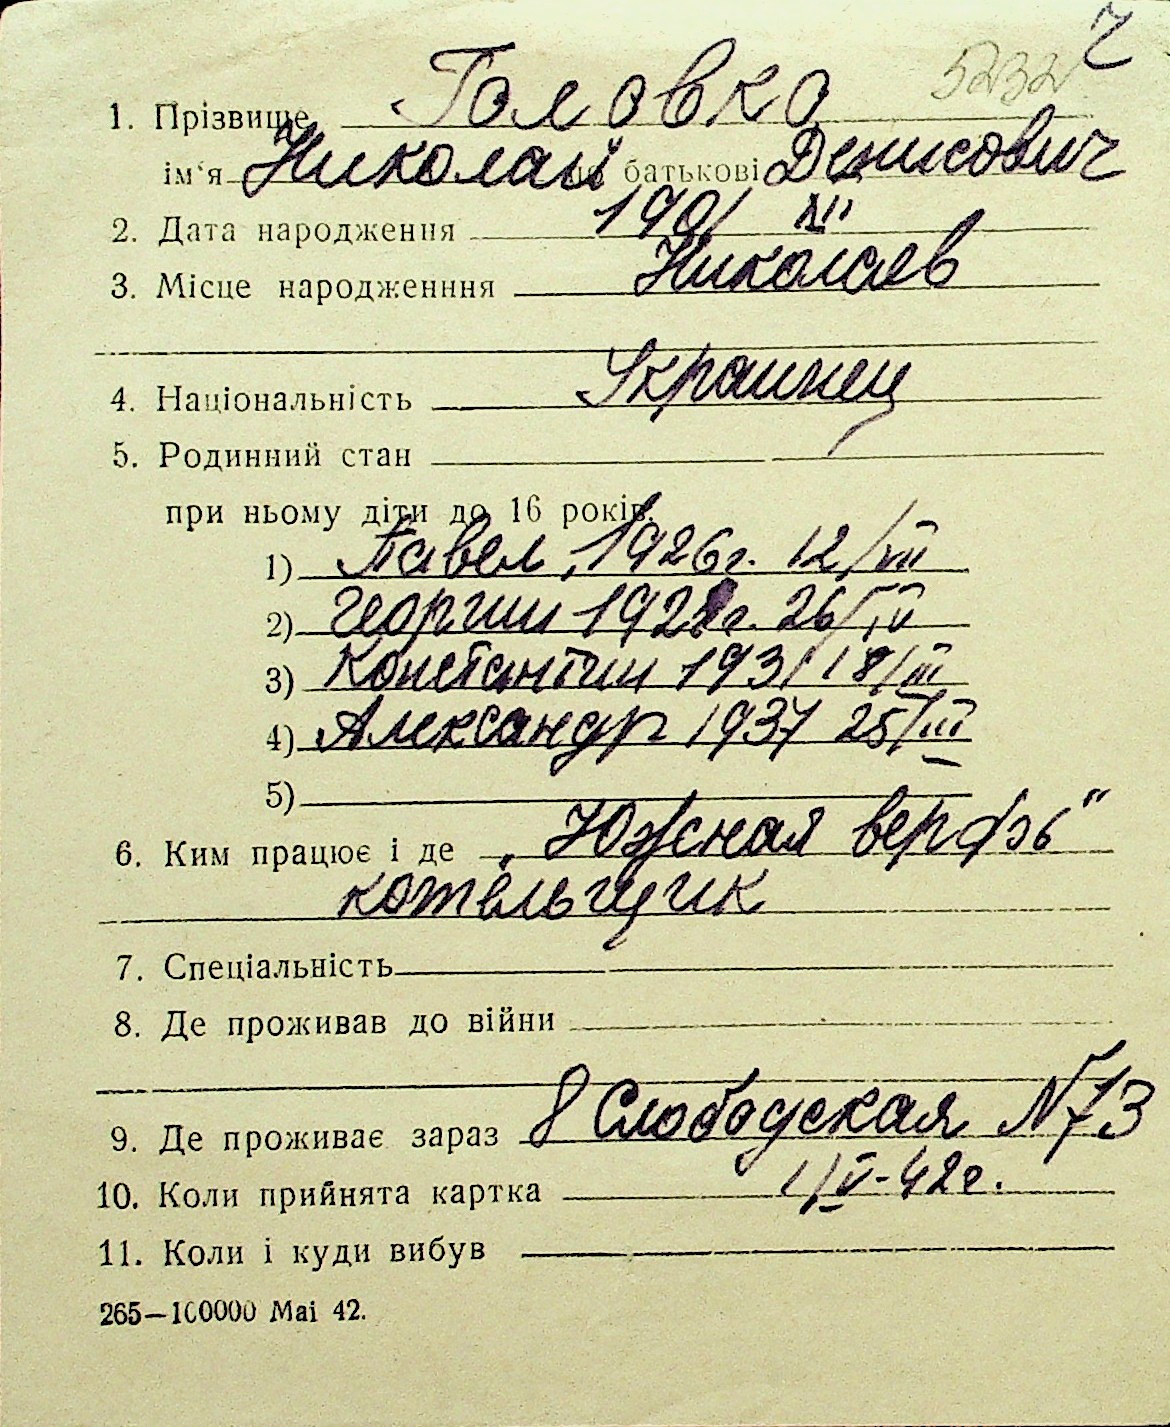 Ч
5232
1. Прізвище Головко
ім‘я Николай батькові Денисович
2. Дата народження 1901 XII
3. Місце народженння Николаев
4. Національність Украинец
5. Родинний стан
при ньому діти до 16 років.
1) Павел, 1926г. 12/VII
2) Георгии 1928г. 26/IV
3) Константин 1931 18/III
4) Александр 1937 25/III
5)
6. Ким працює і де „Южная верфь“
котельщик
7. Спеціальність
8. Де проживав до війни
9. Де проживає зараз 8 Слободская №73
10. Коли прийнята картка 1/V-42г.
11. Коли і куди вибув
265—100000 Mai 42.